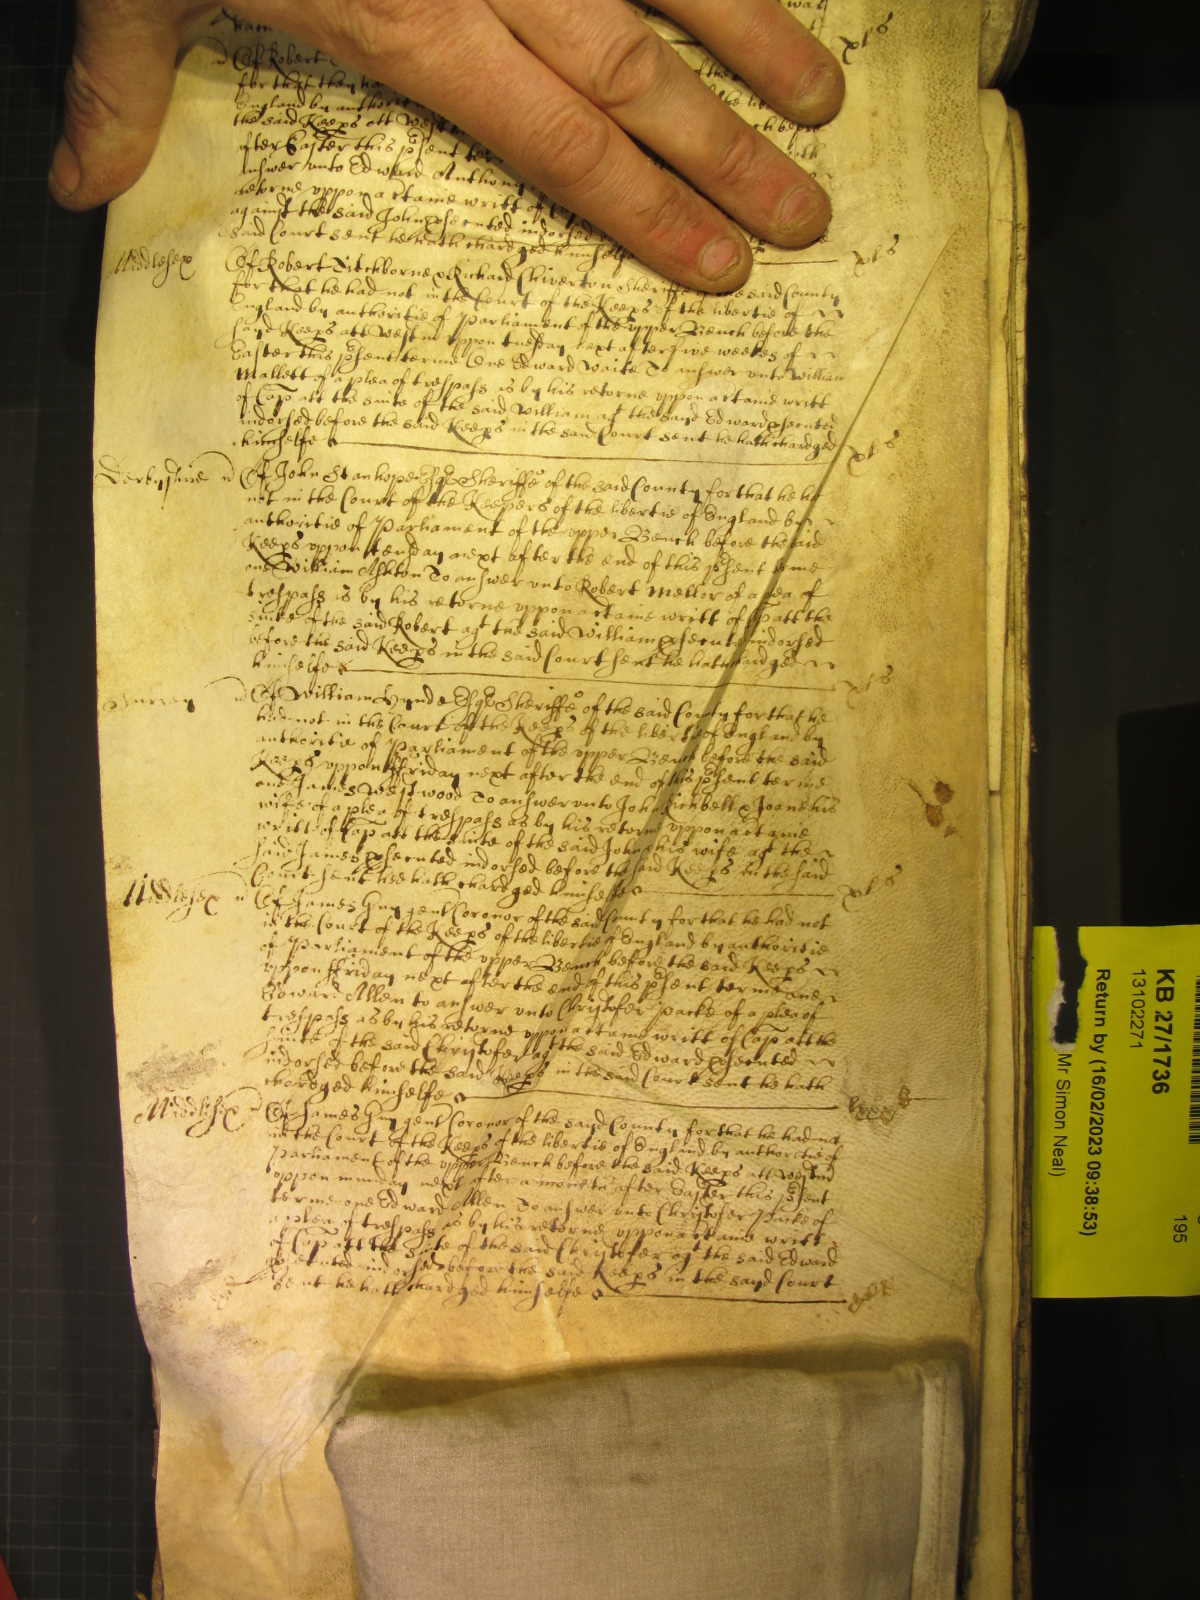 Of Robert
for that they ha
England by authorit
the said Keeps att West
after Easter this psent ter
Answer unto Edward Anthony
retorne uppon a ctaine writt of Cap
against the said John psented indorsed
said Court sent he hath chardged himselfe
xls
xls
Middlesex
Of Robert Titchborne & Richard Chiverton Sheriffe of the said County
for that he had not in the Court of the Keeps of the libertie of
England by authoritie of Parliament of the upper Bench before the
said Keeps att Westm uppon tuesday next after five weekes of
Easter this psent terme One Edward Waite To answer unto William
Mallett of a plea of trespass as by his retorne uppon a ctaine writt
of Cap att the suite of the said William agt the sayd Edward psented
indorsed before the said Keeps in the said Court sent he hath chardged
himselfe
xls
Derbyshire
Of John Stanhope Esqr Sheriffe of the said County for that he ha
not in the Court of the Keepers of the libertie of England by
authoritie of Parliament of the upper Bench before the said
Keeps uppon tuesday next after the end of this psent terme
one William Ashton To answer unto Robert Mellor of a plea of
trespass as by his retorne uppon a ctaine writt of Cap att the
suite of the said Robert agt the said William psented indorsed
before the said Keeps in the said Court sent he hath chardged
himselfe
xls
Surrey
Of William Wynde Esqr Sheriffe of the said County for that he
had not in the Court of the Keeps of the libertie of England by
authoritie of Parliament of the upper Bench before the said
Keeps uppon ffriday next after the end of this psent terme
one James Westwood To answer unto John & Joane his
wife of a plea of trespass as by his retorne uppon a ctaine
writt of Cap att the suite of the said John & his wife agt the
said James psented indorsed before the said Keeps in the said
Court sent hee hath chardged himselfe
xls
Middlesex
Of James Guy gent Coronor of the said County for that he had not
in the Court of the Keeps of the libertie of England by authoritie
of Parliament of the upper Bench before the said Keeps
uppon ffriday next after the end of this psent terme one
Edward Allen to answer unto Christofer Packe of a plea of
trespass as by his retorne uppon a ctaine writt of Cap att the
suite of the said Christofer agt the said Edward psented
indorsed before the said Keeps in the said Court sent he hath
chardged himselfe
Middlesex
Of James Guy gent Coronor of the sayd County for that he had not
in the Court of the Keeps of the libertie of England by authoritie of
Parliament of the upper Bench before the said Keeps att Westm
uppon munday next after a moneth after Easter this psent
terme one Edward Allen To answer unto Christofer Packe of
a plea of trespass as by his retorne uppon a ctaine writt
of Cap att the suite of the said Christofer agt the said Edward
psented indorsed before the said Keeps in the sayd Court
sent he hath chardged himselfe
KB 27/1736
13102271
195
Return by (16/02/2023 09:38:53)
Mr Simon Neal)